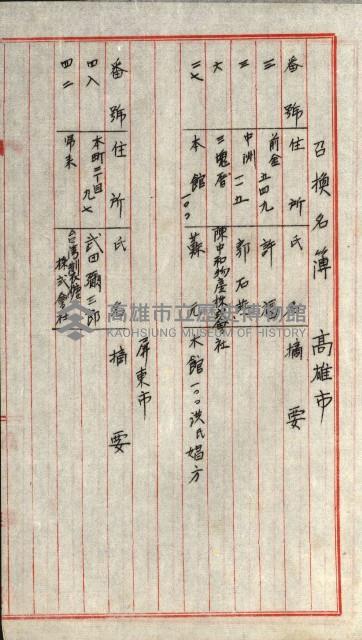 召換名簿 高雄市
番號 住所 氏名 摘要
三 前金 五四九 許
三 中洲 一二五 郭石
六 三塊厝 陳中和物產株式會社
二七 本館 一〇〇 蘇 本館 一〇〇 洪氏娼方
屏東市
番號 住所 氏名 摘要
四八 本町三丁目 九七 武田 三郎
四二 歸來 台灣製糖株式會社
高雄市立歷史博物館
KAOHSIUNG MUSEUM OF HISTORY